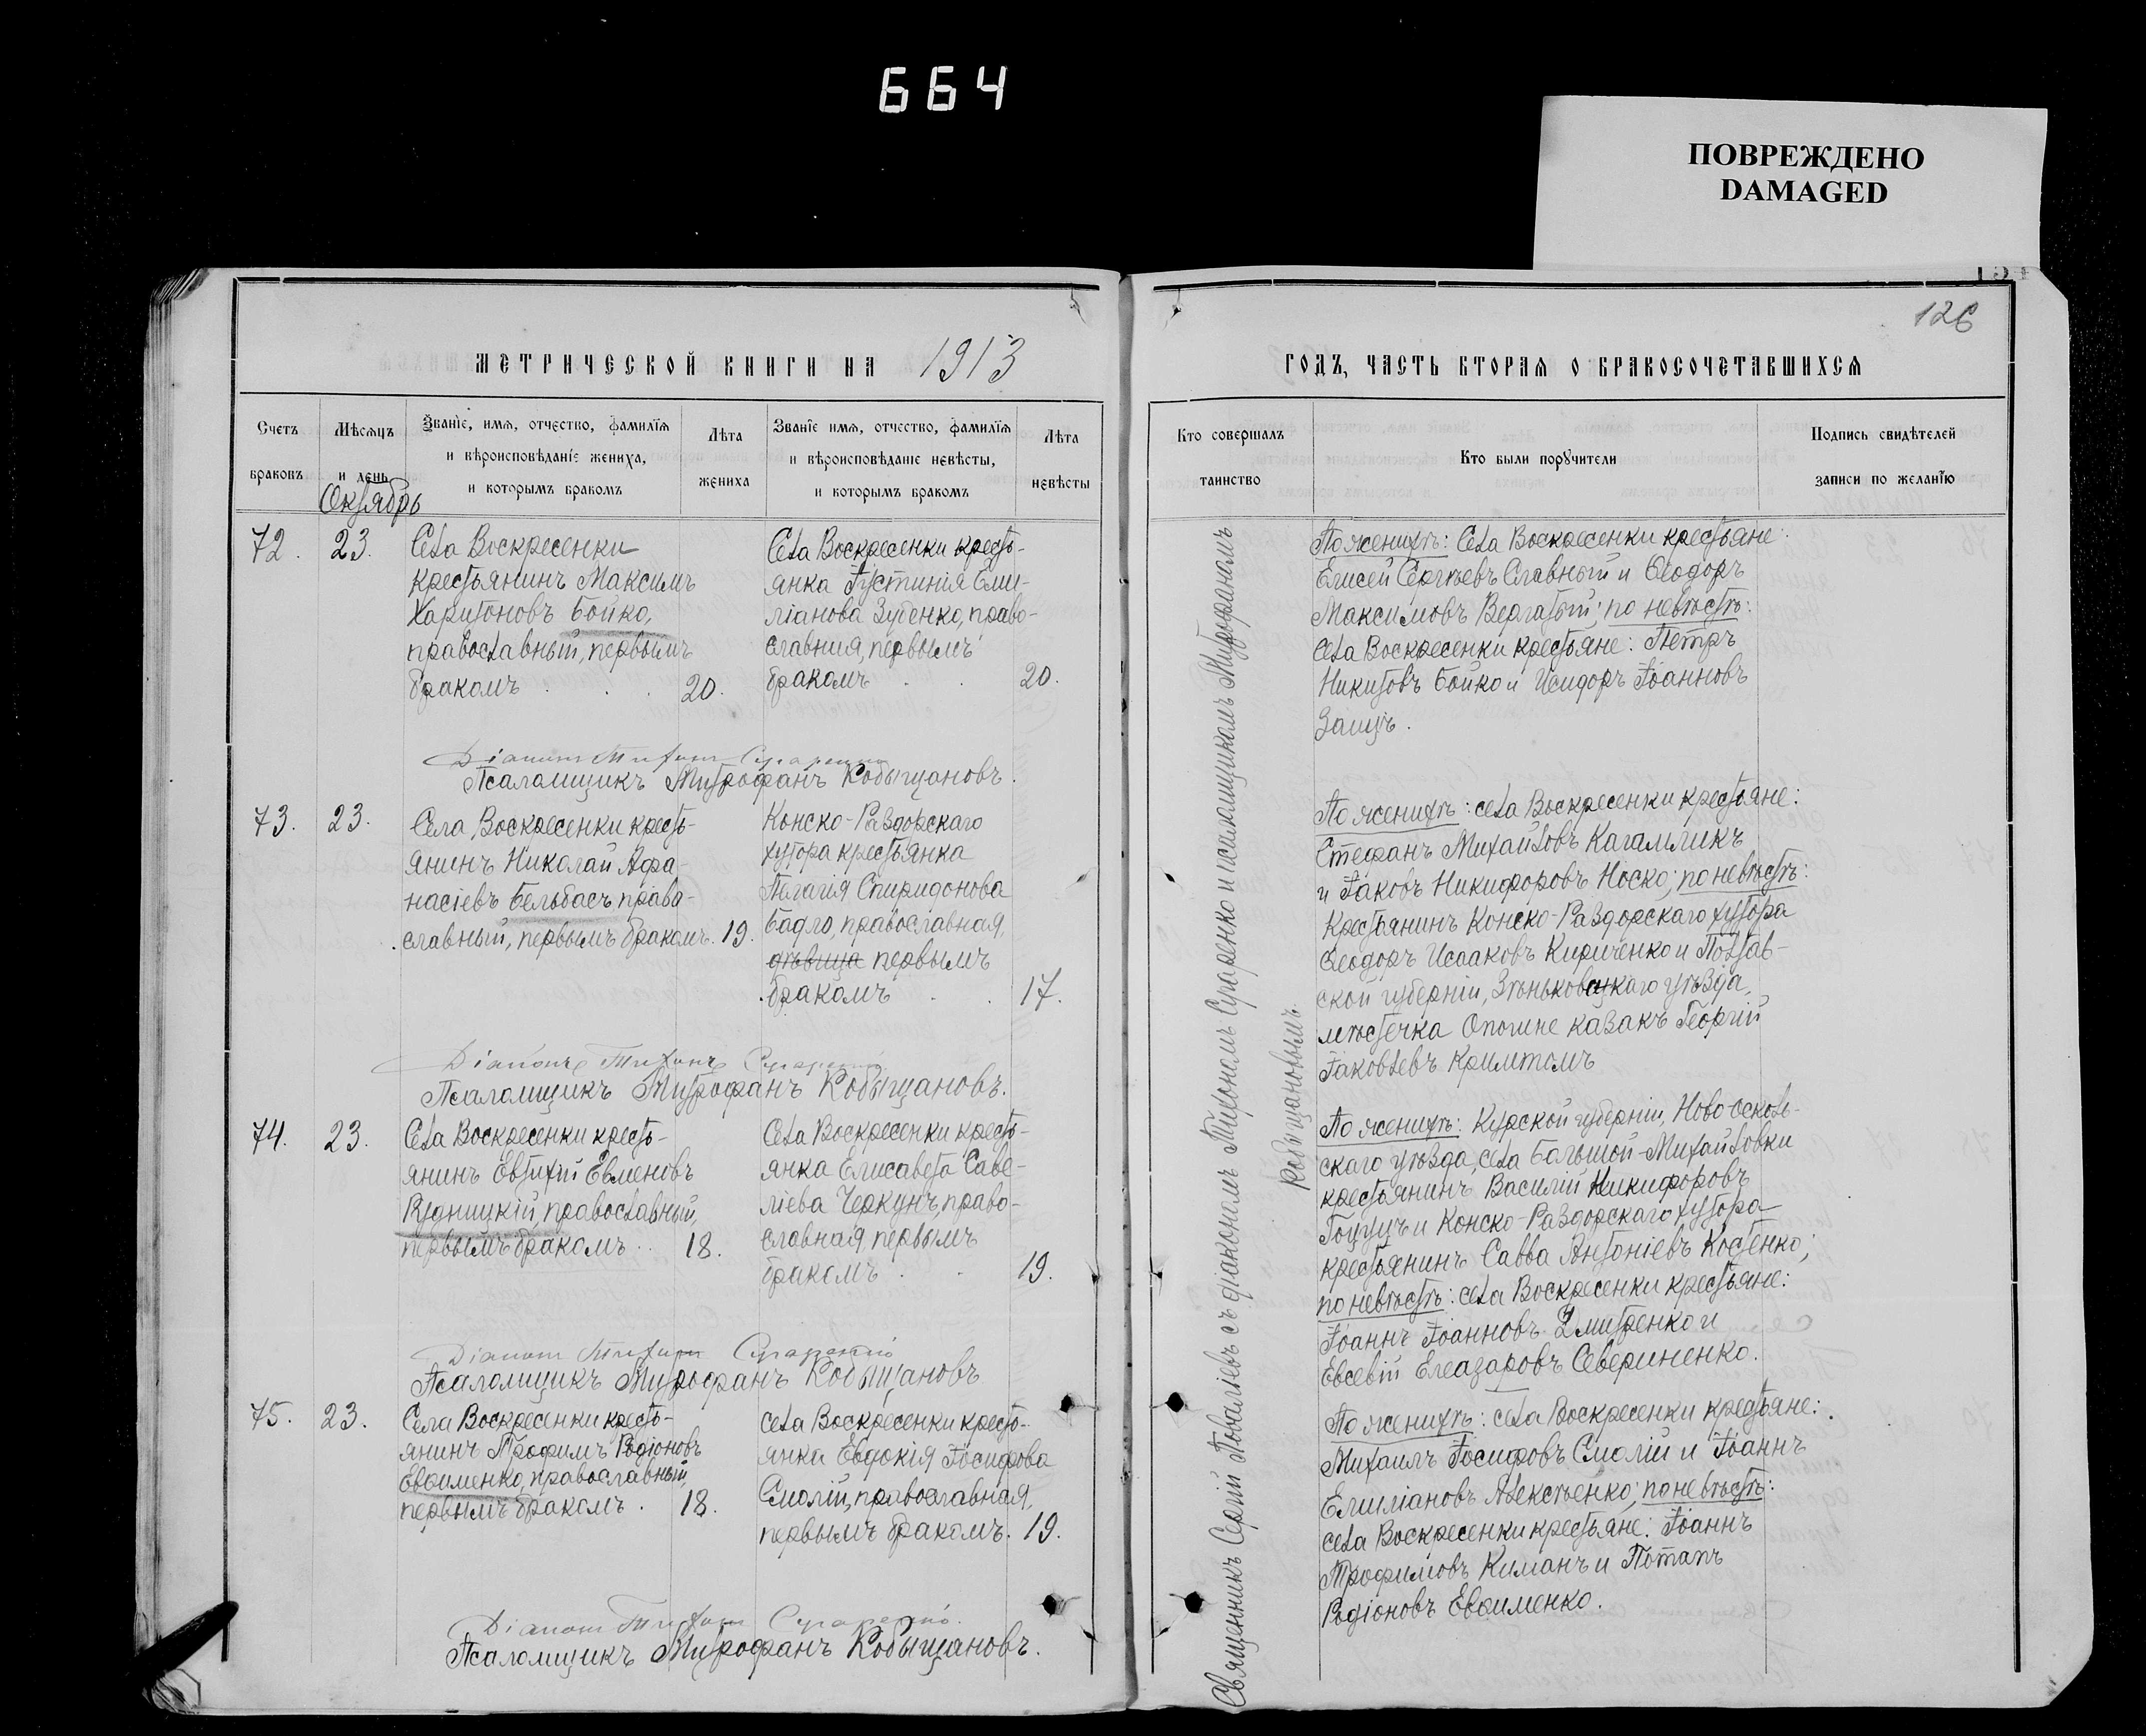 664
ПОВРЕЖДЕНО
DAMAGED
126
МЕТРИЧЕСКОЙ КНИГИ НА 1913
ГОДЪ, ЧАСТЬ ВТОРАЯ О БРАКОСОЧЕТАВШИХСЯ
Счетъ браковъ
Мѣсяцъ и день
Званіе, имя, отчество, фамилія и вѣроисповѣданіе жениха, и которымъ бракомъ
Лѣта жениха
Званіе имя, отчество, фамилія и вѣроисповѣданіе невѣсты, и которымъ бракомъ
Лѣта невѣсты
Кто совершалъ таинство
Кто были поручители
Подпись свидѣтелей записи по желанію
Октябрь
72. 23.
Села Воскресенки
крестьянинъ Максимъ
Харитоновъ Бойко,
православный, первымъ
бракомъ 20.
Села Воскресенки кресть-
янка Іустинія Еми-
ліанова Зубенко, право-
славния, первымъ
бракомъ 20.
Діаконъ Тихонъ
Псаломщикъ Митрофанъ Кобыщановъ.
73. 23.
Села Воскресенки кресть-
янинъ Николай Афа-
насіевъ Бельбасъ право-
славный, первымъ бракомъ. 19.
Конско-Раздорскаго
хутора крестьянка
Пелагія Спиридонова
Бадло, православная,
дѣвица первымъ
бракомъ 17.
Діаконъ Тихонъ
Псаломщикъ Митрофанъ Кобыщановъ.
74. 23.
Села Воскресенки кресть-
янинъ Евтихій Евменовъ
Рудницкій, православный,
первымъ бракомъ 18.
Села Воскресенки кресть-
янка Елисавета Саве-
ліева Черкунъ, право-
славная первымъ
бракомъ 19.
Діаконъ Тихонъ
Псаломщикъ Митрофанъ Кобыщановъ
75. 23.
Села Воскресенки кресть-
янинъ Трофимъ Родіоновъ
Евѳименко, православный,
первымъ бракомъ. 18.
села Воскресенки кресть-
янка Евдокія Іосифова
Смолій, православная,
первымъ бракомъ. 19.
Діаконъ Тихонъ
Псаломщикъ Митрофанъ Кобыщановъ.
Священникъ Сергій съ діакономъ Тихономъ и псаломщикомъ Митрофаномъ
Кобыщановымъ.
По женихѣ: Села Воскресенки крестьяне:
Елисей Сергѣевъ Славный и Ѳеодоръ
Максимовъ Вергатый; по невѣстѣ:
села Воскресенки крестьяне: Петръ
Никитовъ Бойко и Исидоръ Іоанновъ
Заицъ.
По женихѣ: села Воскресенки крестьяне:
Стефанъ Михайловъ Кагамликъ
и Іаковъ Никифоровъ Носко; по невѣстѣ:
крестьянинъ Конско-Раздорскаго хутора
Ѳеодоръ Исааковъ Кириченко и Полтав-
ской губерніи, Зѣньковскаго уѣзда,
мѣстечка Опошне казакъ Георгій
Іаковлевъ
По женихѣ: Курской губерніи, Ново-Осколь-
скаго уѣзда, села Большой-Михайловки
крестьянинъ Василій Никифоровъ
и Конско-Раздорскаго хутора
крестьянинъ Савва Антоніевъ Костенко;
по невѣстѣ: села Воскресенки крестьяне:
Іоаннъ Іоанновъ Дмитренко и
Евсевій Елеазаровъ Севериненко.
По женихѣ: села Воскресенки крестьяне:
Михаилъ Іосифовъ Смолій и Іоаннъ
Емиліановъ Алексѣенко; по невѣстѣ:
села Воскресенки крестьяне: Іоаннъ
Трофимовъ Киманъ и Потапъ
Родіоновъ Евѳименко.